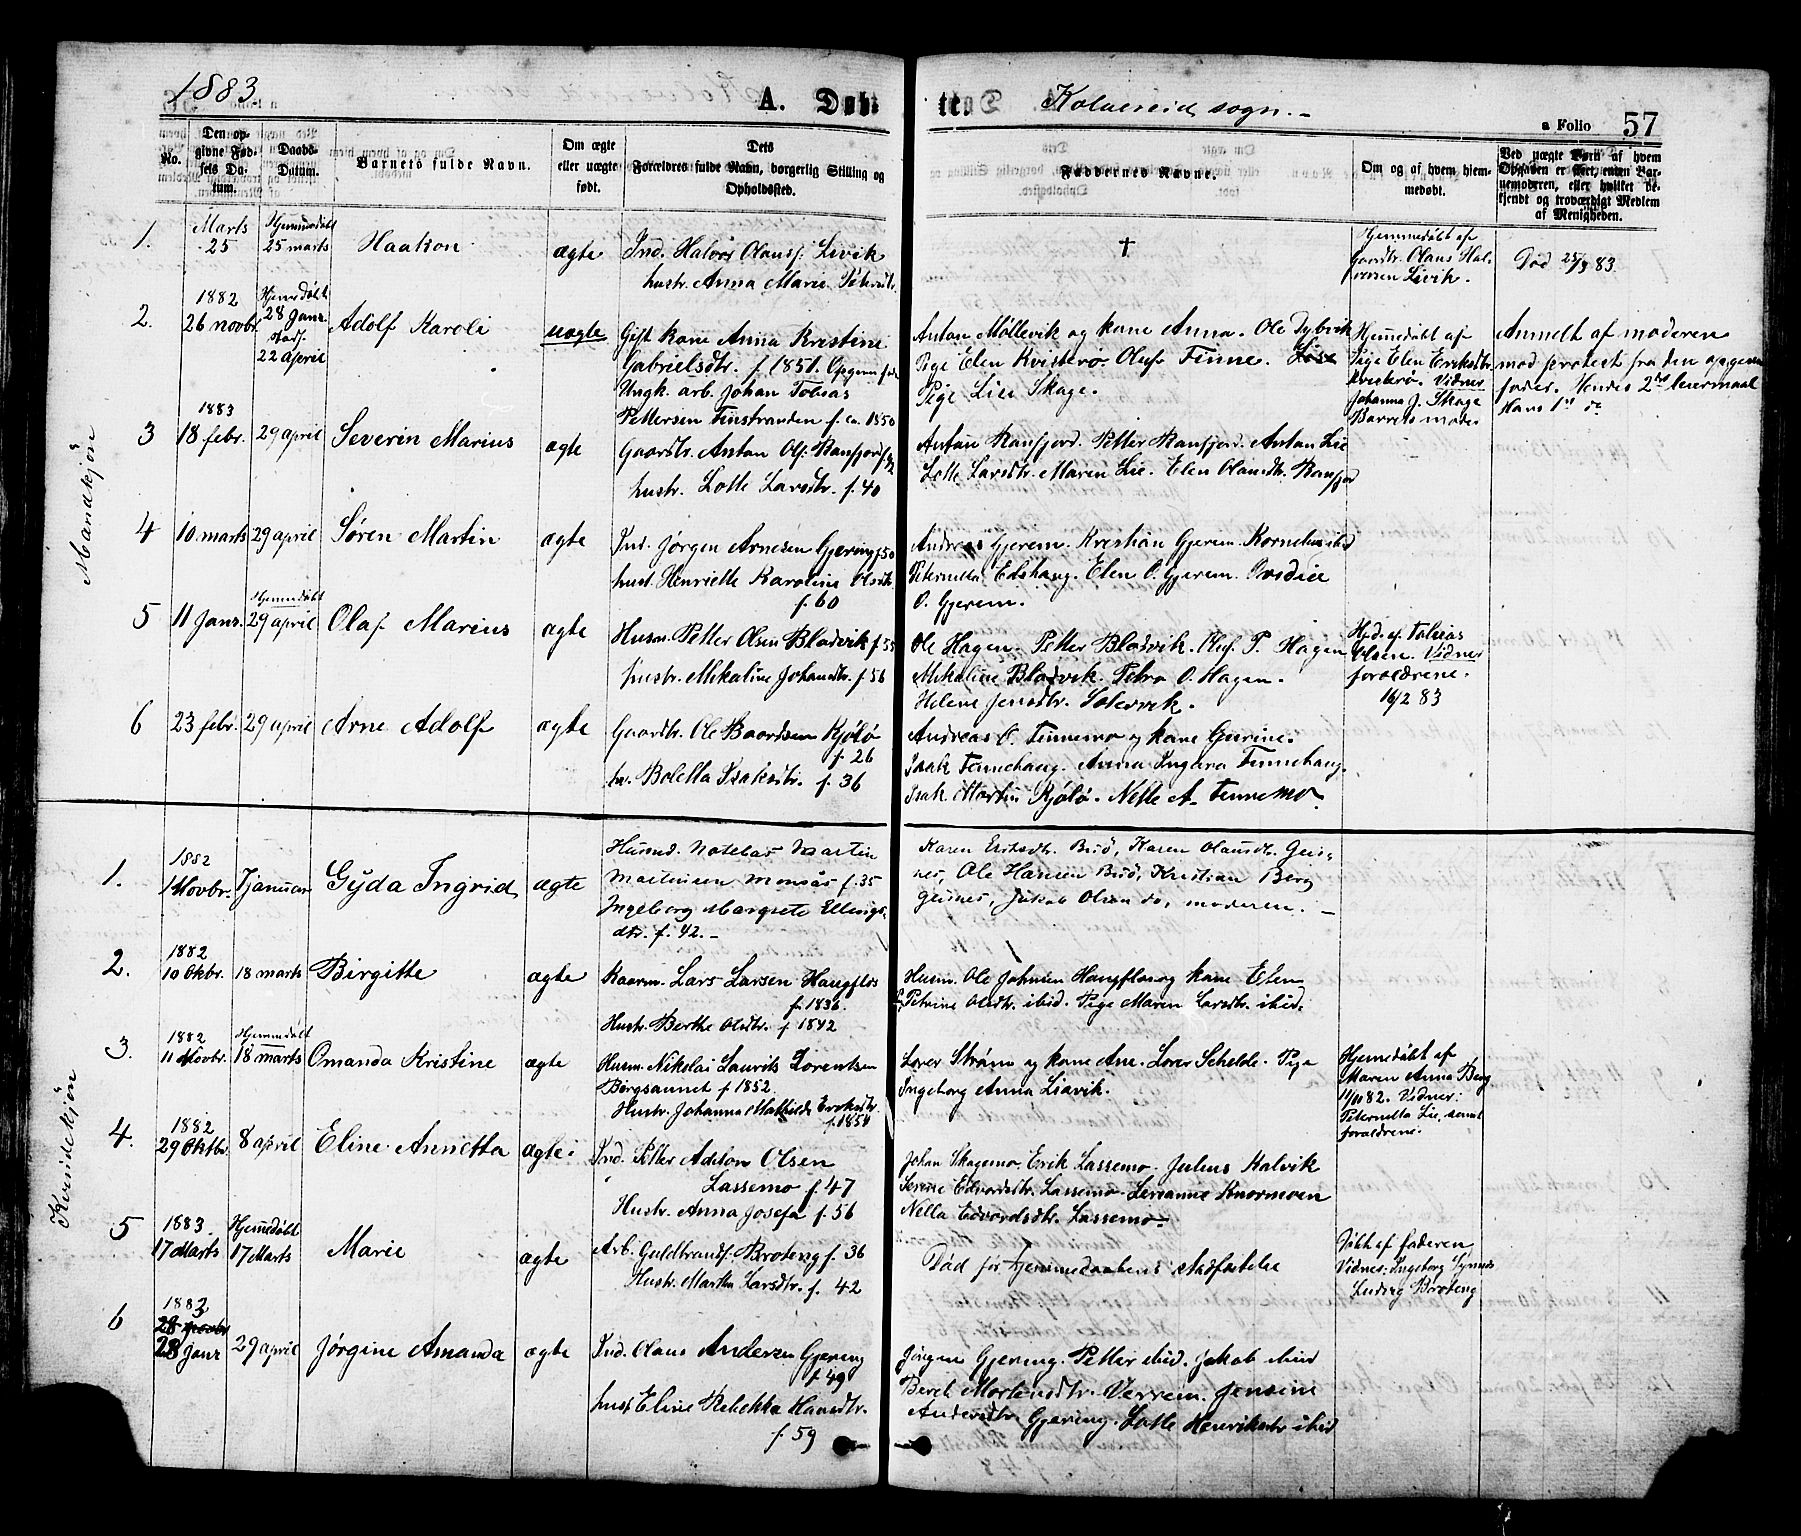 1883
A. Døb-
te. Kolvereid sogn.-
a Folio 57
No.
Den opgivne Fødsels Datum.
Daabs-Datum.
Barnets fulde Navn.
Om ægte eller uægte født.
Dets Foreldres fulde Navn, borgerlig Stilling og Opholdssted.
Faddernes Navne.
Om og af hvem hjemmedøbt.
Ved uægte Børn af hvem Opgaven er skeet, enten Barnemoderen, eller hvilket bekjendt og troværdigt Medlem af Menigheden.
Mandkjön
1. Marts 25 Hjemmedøbt 25 marts Haakon ægte Ind. Halvor Olauss. Livik
hustr. Anna Marie Petersdtr.
†
Hjemmedøbt af
Gaardbr. Olaus Hal-
vorsen Livik.
Død 25/3 83.
2. 1882 26 novbr. Hjemedøbt 28 Janr. stadf. 22 april Adolf Karoli uægte Gift kone Anna Kristine
Gabrielsdtr. f. 1851. Opgiven fader
Ungk. arb. Johan Tobias
Pettersen Finstranden f. ca. 1850
Anton Møllevik og kone Anna. Ole Dybvik
Pige Elen Kvisterø. Oluf Finne.
Pige Lise Skage.
Hjemedøbt af
Pige Elen Eriksdtr.
Kvisterø. Vidner
Johanna J. Skage
Barnets moder
Anmeldt af moderen
med protest fra den opgivne
fader. Hendes 2det leiermaal
Hans 1ste do
3 1883 18 febr. 29 april Severin Marius ægte Gaardbr. Anton Ols. Ranfjord f. 42
hustr. Lotte Larsdtr. f. 40
Anton Ranfjord. Petter Ranfjord. Anton Lie
Lotte Larsdtr. Maren Lie. Elen Olausdtr. Ranfjord
4 10 marts 29 april Søren Martin ægte Ind. Jørgen Arnesen Gjering f. 50
hust. Henriette Karoline Olsdtr.
f. 60
Andreas Gjerem. Kristian Gjerem. Kornelius ibid
Peternella Edshaug. Elen O. Gjerem. Ovedie
O. Gjerem.
5 11 Janr. Hjemmedøbt 29 april Olaf Marius ægte Husm. Petter Olsen Bladvik f. 55
hustr. Mikaline Johansdtr. f. 56
Ole Hagen. Petter Bladvik. Oluf P. Hagen
Mikaline Bladvik. Petra O. Hagen.
Helene Jensdtr. Solervik.
Hjd. af Tobias
Olsen. Vidner
forældrene.
16/2 83
6 23 febr. 29 april Arne Adolf ægte Gaardbr. Ole Baardsen Kjølø
f. 26
hu. Boletta Isaksdtr. f. 36
Andreas O. Finnemo og kone Gurine.
Isak Finnehaug. Anna Ingera Finnehaug.
Isak Martin Kjølø. Nette A. Finnemo.
Kvindekjön
1. 1882 1 Novbr. 7 januar Gyda Ingrid ægte Husmd. Notelas Martin
Martinsen Monsås f. 35
Ingeborg Margrete Ellings-
dtr. f. 42.-
Karen Eriksdtr. Brø, Karen Olausdtr. Geis-
nes, Ole Hansen Brø, Kristian Berg
Geisnes, Jakob Olsen do, moderen.-
2. 1882 10 Oktbr. 18 marts Birgitte ægte Kaarm. Lars Larsen Haugflos
f. 1836.
Hustr. Berthe Olsdtr. f 1842
Husm. Ole Johnsen Haugflos og kone Elen
Petrine Olsdtr. ibid. Pige Maren Larsdtr. ibid.
3. 1882 11 Novbr. Hjemmedøbt 18 marts Omanda Kristine ægte Husm. Nikolai Laurits Lorentsen
Borgsaunet f 1852.
Hustr. Johanna Mathilde Eriksdtr.
f. 1854
Lorer Strøm og kone Ane. Lorer Schelde. Pige
Ingeborg Anna Liavik.
Hjemedøbt af
Maren Anna Berg
11/11 82. Vidner:
Peternella Lie, samt
forældrene.
4. 1882 29 Oktbr. 8 april Eline Annetta ægte Ind. Petter Adelon Olsen
Lassemo f. 47
Hustr. Anna Josefa f. 56
Johan Skagemo. Erik Lassemo. Julius Kalvik
Serine Edvardsdtr. Lassemo. Lerianne Kvormoen
Nella Edvardsdtr. Lassemo.
5 1883. 17 Marts Hjemedøbt 17 Marts Marie ægte Arb. Guldbrand Broteng f. 36
Hustr. Martha Larsdtr. f. 42
Død før hjemmedaabens stadfæstelse
Døbt af faderen
Vidner: Ingeborg
Ludvig Broteng
6 1883 28 Novbr 28 Janr 29 april Jørgine Amanda ægte Ind. Olaus Andersen Gjering
f. 49
hust Eline Rebekka Hansdtr.
f. 59
Jørgen Gjering. Petter ibid. Jakob ibid
Beret Mortensdtr. Verrem. Jensine
Andersdtr. Gjering. Lotte Henriksdtr ibid